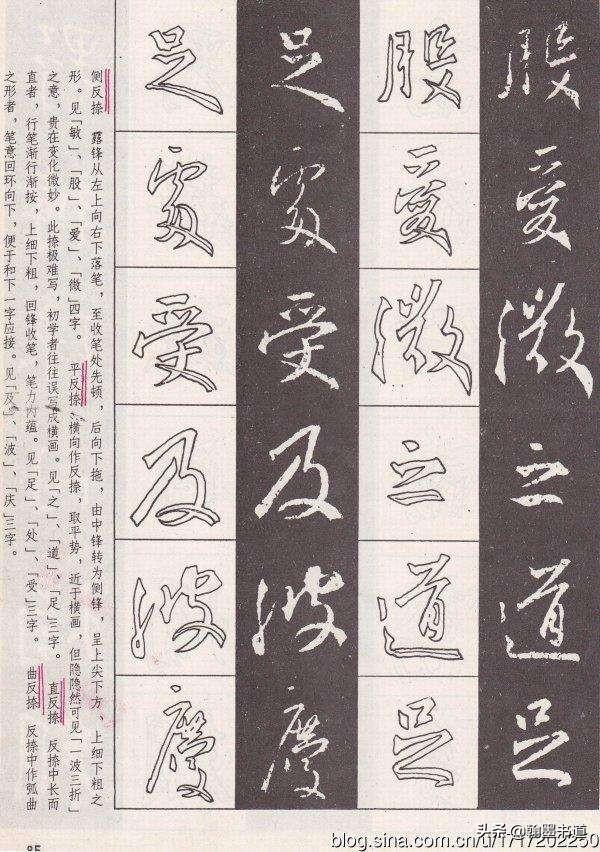 股愛微之道足
股愛微之道足
足處受及波慶
足處受及波慶
侧反捺　露锋从左上向右下落笔，至收笔处先顿，后向下拖，由中锋转为侧锋，呈上尖下方、上细下粗之
形。见「敏」、「股」、「爱」、「微」四字。　平反捺　横向作反捺，取平势，近于横画，但隐隐然可见「一波三折」
之意，贵在变化微妙。此捺极难写，初学者往往误写成横画。见「之」、「道」、「足」三字。　直反捺　反捺中长而
直者，行笔渐行渐按，上细下粗，回锋收笔，笔力内蕴。见「足」、「处」、「受」三字。　曲反捺　反捺中作弧曲
之形者，笔意回环向下，便于和下一字应接。见「及」、「波」、「庆」三字。
头条@翰墨书道
blog.sina.com.cn/u/1717202250